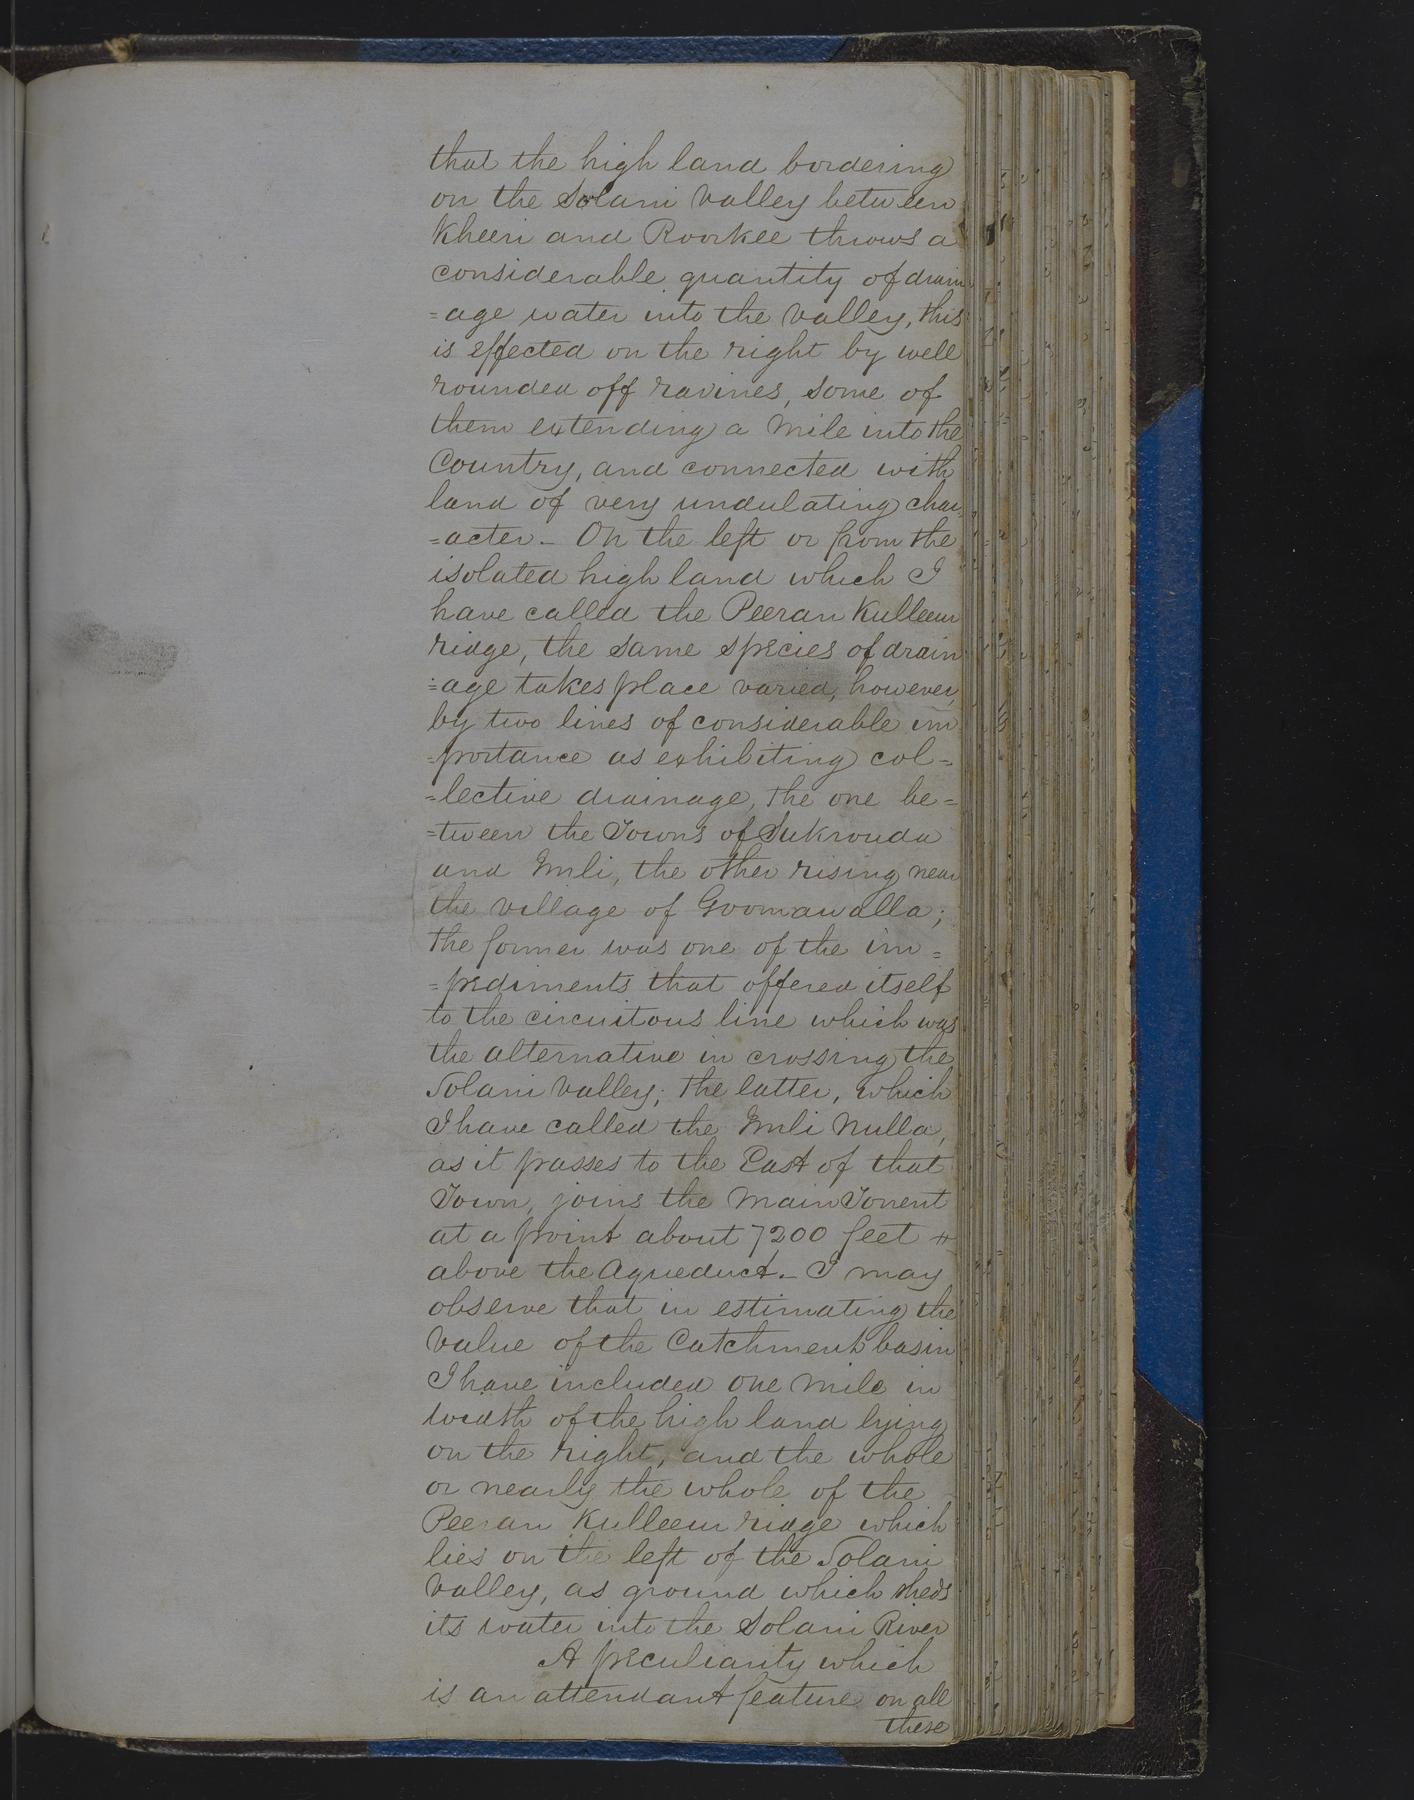 that the high land bordering
on the Solani Valley between
Kheeri and Roorkee throws a
considerable quantity of drain
=age water into the Valley, this
is effected on the right by well
rounded off ravines, some of
them extending a mile into the
Country, and connected with
land of very undulating char
=acter_ On the left or from the
isolated high land which I
have called the Peeran Kulleeur
ridge, the same species of drain
=age takes place varied, however,
by two lines of considerable im
=portance as exhibiting col=
=lective drainage, the one be=
=tween the Towns of Sukrouda
and Imli, the other rising near
the village of Goomawalla;
the former was one of the im=
=pediments that offered itself
to the circuitous line which was
the alternative in crossing the
Solani Valley; the latter, which
I have called the Imli Nulla,
as it passes to the East of that
Town, joins the Main Torrent
at a point about 7200 feet #
above the Aqueduct._ I may
observe that in estimating the
Value of the Catchment basin
I have included one mile in
width of the high land lying
on the right, and the whole
or nearly the whole of the
Peeran Kulleeur ridge which
lies on the left of the Solani
Valley, as ground which sheds
its water into the Solani River
A peculiarity which
is an attendant feature on all
these